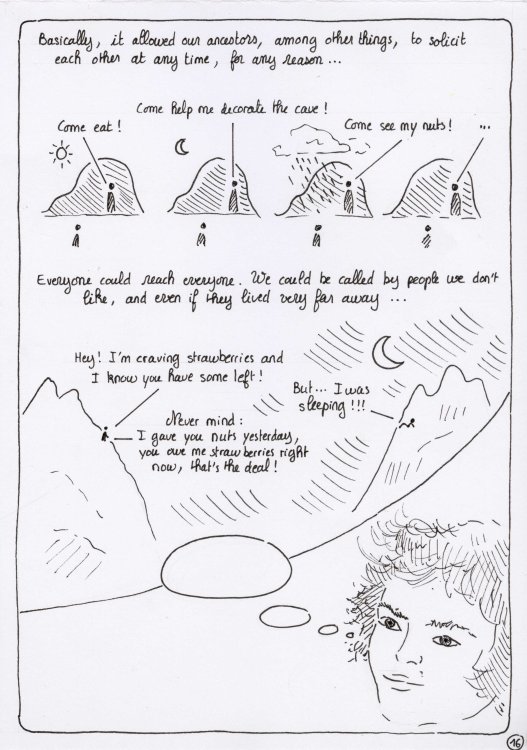 Basically, it allowed our ancestors, among other things, to solicit
each other at any time, for any reason ...
Come eat !
Come help me decorate the cave !
Come see my nuts!
...
Everyone could reach everyone. We could be called by people we don't
like, and even if they lived very far away ...
Hey! I'm craving strawberries and
I know you have some left!
But... I was
sleeping !!!
Never mind :
I gave you nuts yesterday,
you owe me strawberries right
now, that's the deal !
16